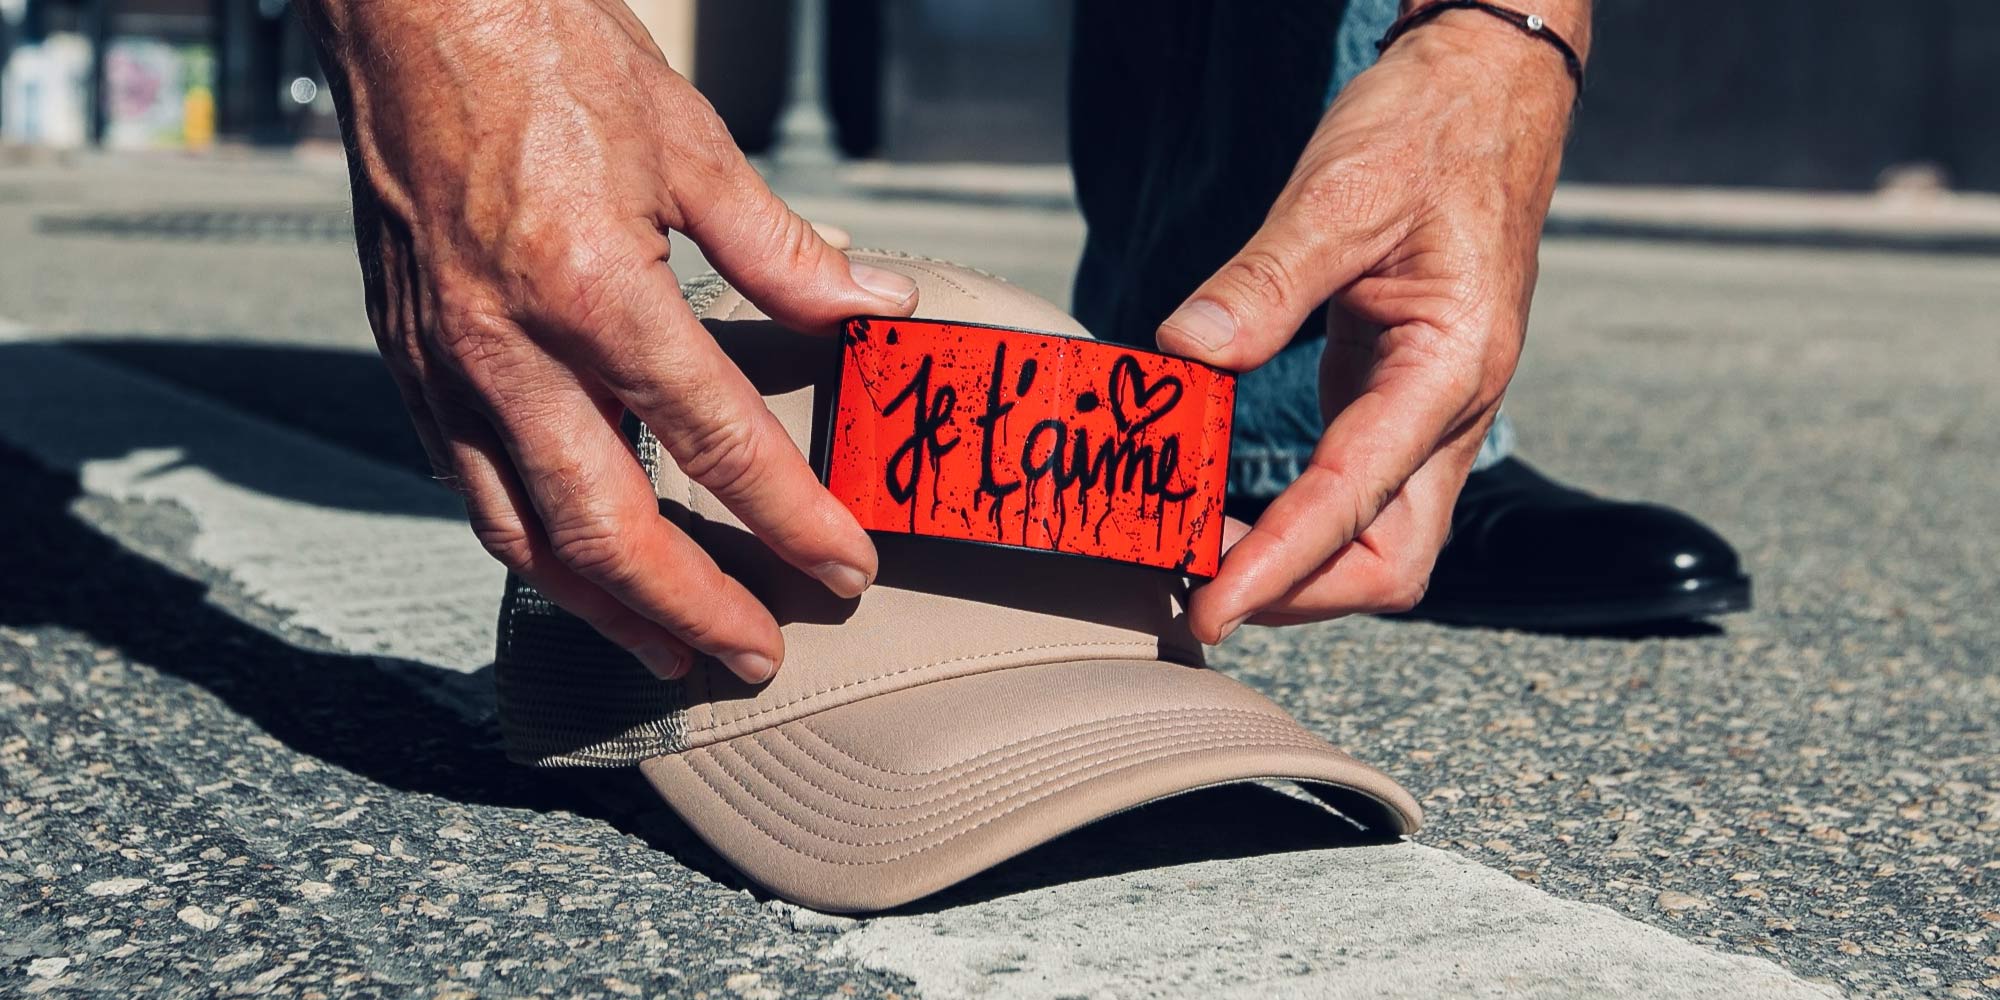 Je t'aime